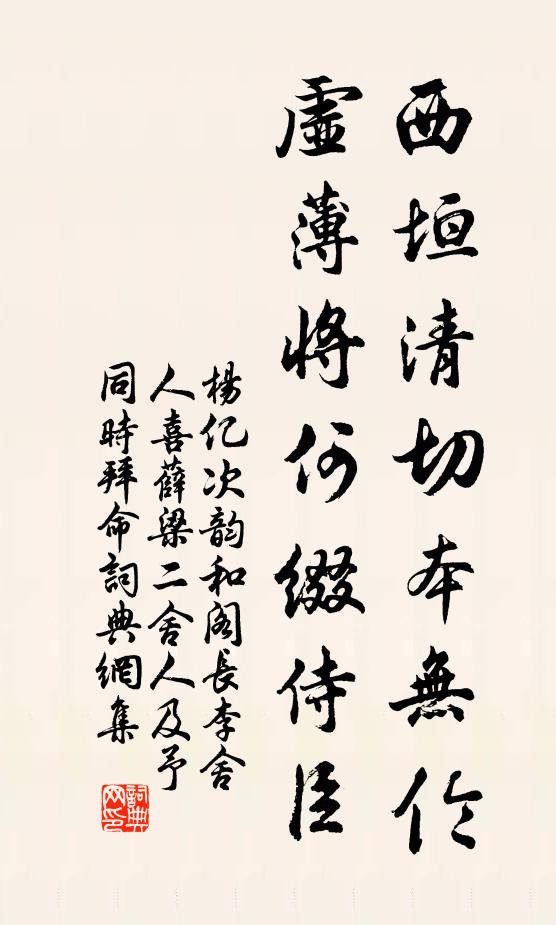 西垣清切本無倫
虛薄將何綴侍臣
楊亿次韵和阁長李舍
人喜薛梁二舍人及予
同時拜命詞典網集
詞典
网印